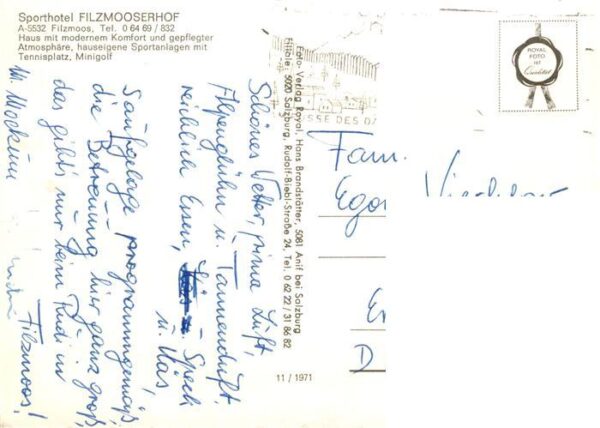 Sporthotel FILZMOOSERHOF
A-5532 Filzmoos, Tel. 0 64 69 / 832
Haus mit modernem Komfort und gepflegter
Atmosphäre, hauseigene Sportanlagen mit
Tennisplatz, Minigolf
Schönes Wetter, prima Luft,
Alpenglühn u. Tannenduft.
reichlich Essen, Speck u. Kas,
Saufgelage programmgemäß,
die Betreuung hier ganz groß,
das gibt's nur beim Rudi in
Filzmoos!
Foto-Verlag Royal, Hans Brandstätter, 5081 Anif bei Salzburg
Filiale: 5020 Salzburg, Rudolf-Biebl-Straße 24, Tel. 0 62 22 / 31 86 82
11 / 1971
SSE DES
ROYAL
FOTO
ist
Qualität
Fam.
Egon
D